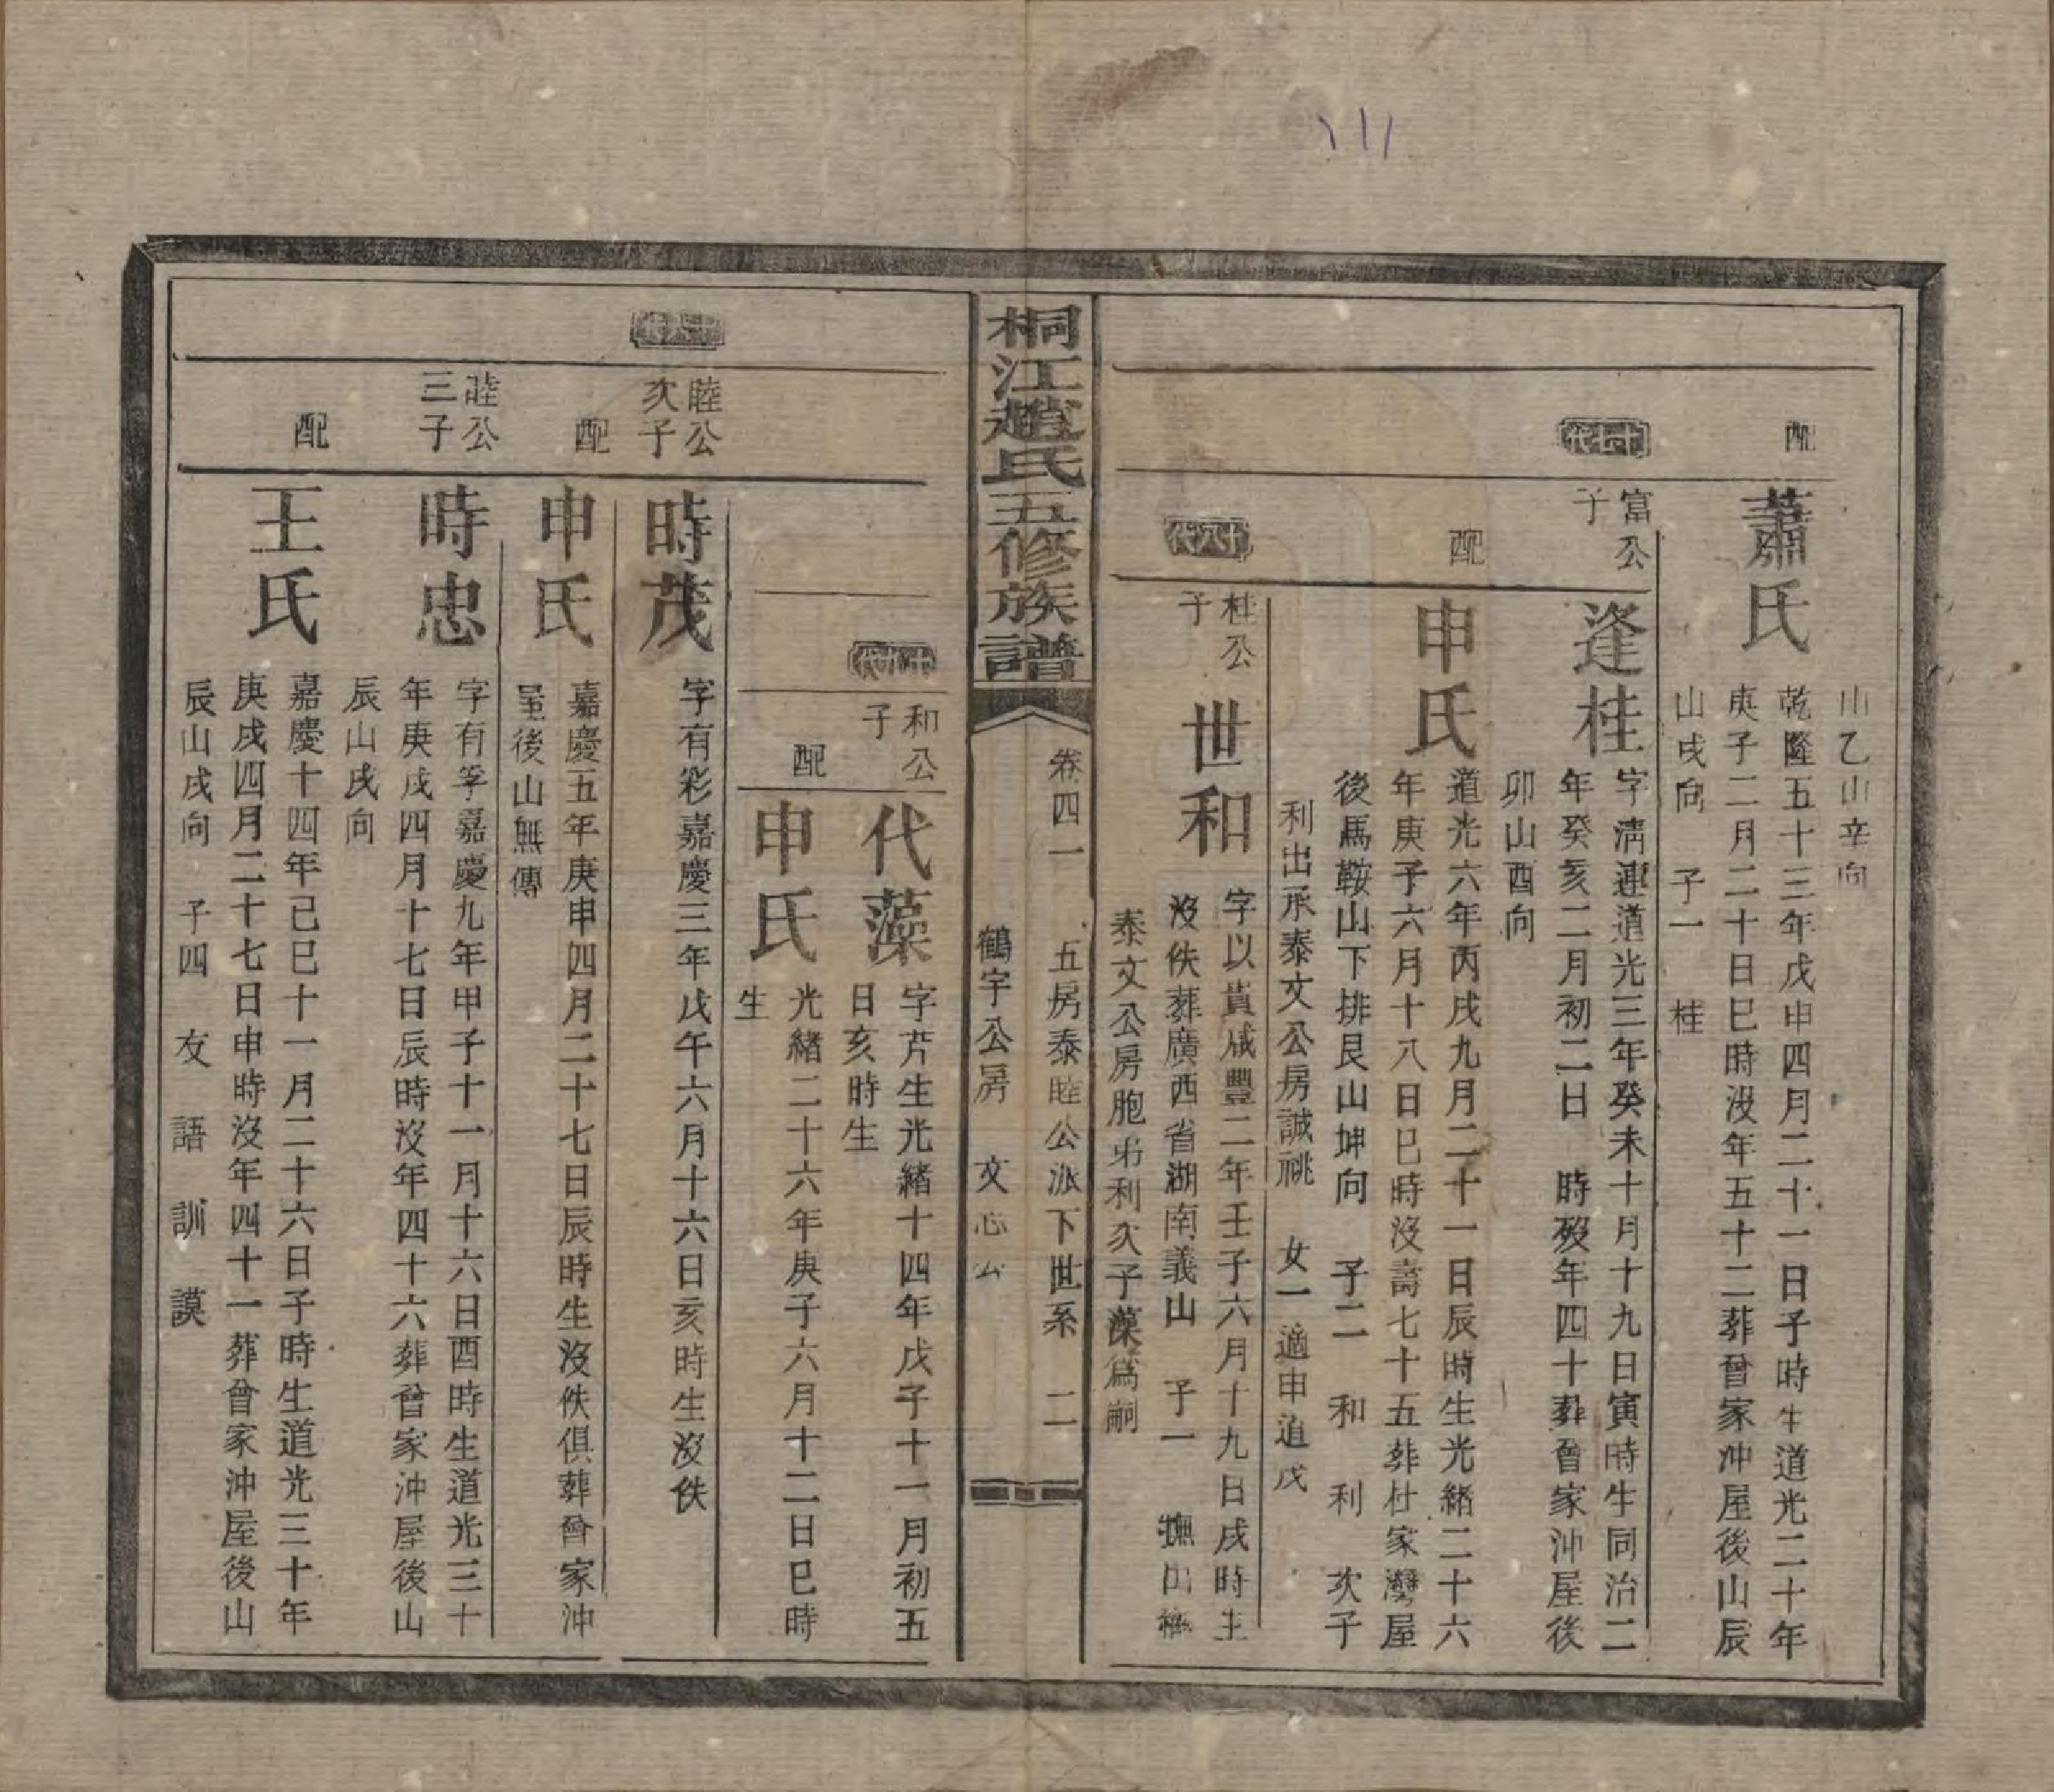 山乙山辛向
配
蕭氏
乾隆五十三年戊申四月二十一日子時生道光二十年
庚子二月二十日巳時沒年五十二葬曾家冲屋後山辰
山戌向 子一 桂
十七代
富公
子
逢桂
字淸連道光三年癸未十月十九日寅時生同治二
年癸亥二月初二日 時歿年四十葬曾家冲屋後
卯山酉向
配
申氏
道光六年丙戌九月二十一日辰時生光緒二十六
年庚子六月十八日巳時沒壽七十五葬杜家灣屋
後馬鞍山下排艮山坤向 子二 和 利 次子
利出承泰文公房誠祧 女一適申道戊
十八代
桂公
子
世和
字以貴咸豐二年壬子六月十九日戌時生
沒佚葬廣西省湖南義山 子一 撫出繼
泰文公房胞弟利次子藻爲嗣
桐江趙氏五修族譜
卷四一 五房泰睦公派下世系 二
鶴字公房 文志公
十九代
和公
子
代藻
字芹生光緒十四年戊子十一月初五
日亥時生
配
申氏
光緒二十六年庚子六月十二日巳時
生
十六代
睦公
次子
時茂
字有彩嘉慶三年戊午六月十六日亥時生沒佚
配
申氏
嘉慶五年庚申四月二十七日辰時生沒佚俱葬曾家冲
屋後山無傳
睦公
三子
時忠
字有孚嘉慶九年甲子十一月十六日酉時生道光三十
年庚戌四月十七日辰時沒年四十六葬曾家冲屋後山
辰山戌向
配
王氏
嘉慶十四年己巳十一月二十六日子時生道光三十年
庚戌四月二十七日申時沒年四十一葬曾家冲屋後山
辰山戌向 子四 友 語 訓 謨